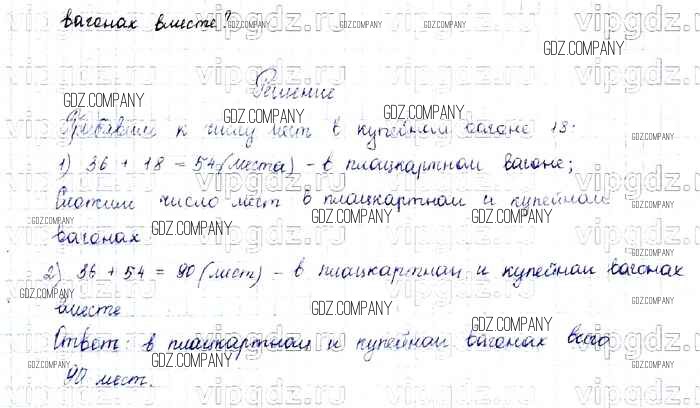 вагонах вместе?
Решение
Прибавим к числу мест в купейном вагоне 18.
1) 36 + 18 = 54 (места) - в плацкартном вагоне;
Сложим число мест в плацкартном и купейном
вагонах.
2) 36 + 54 = 90 (мест) - в плацкартном и купейном вагонах
вместе
Ответ: в плацкартном и купейном вагонах всего
90 мест.